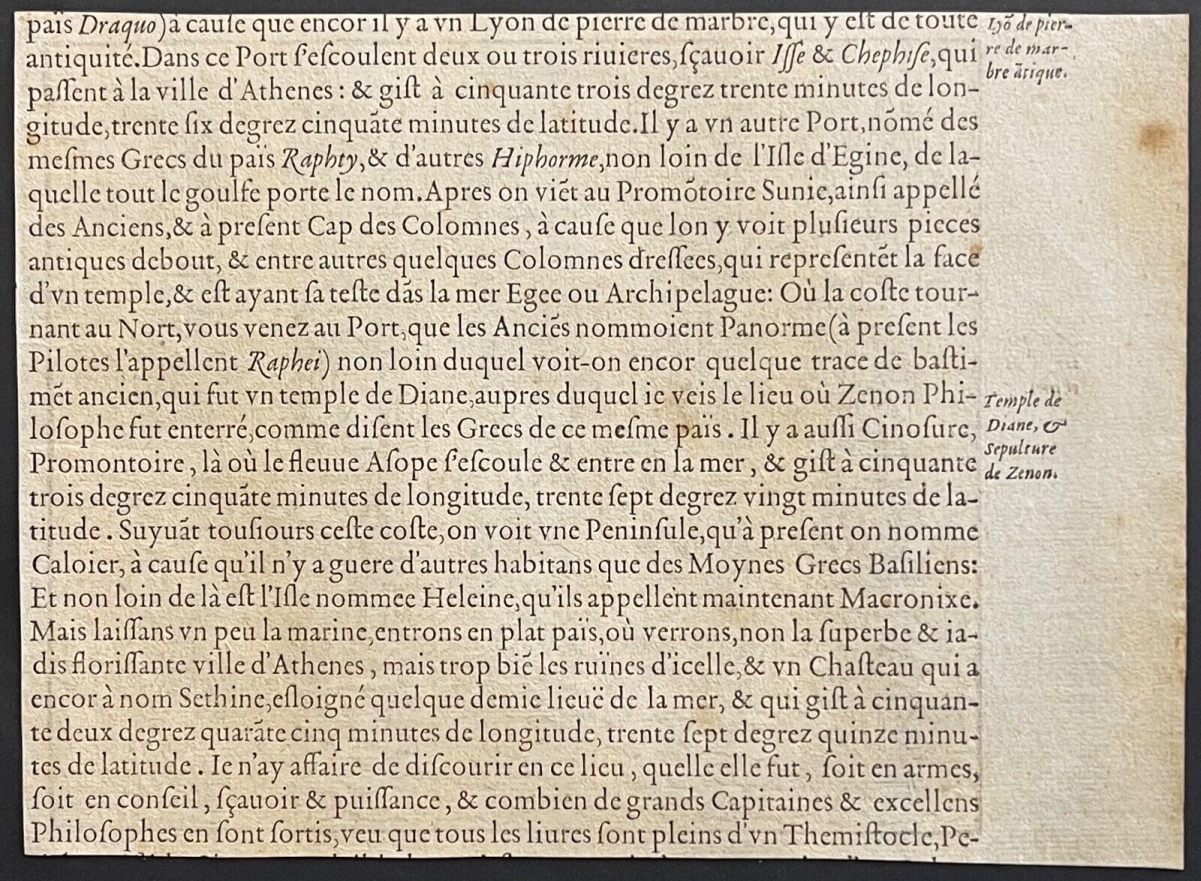 païs Draquo)à cauſe que encor il y a vn Lyon de pierre de marbre,qui y eſt de toute
antiquité.Dans ce Port ſ'eſcoulent deux ou trois riuieres,ſçauoir Iſſe & Chephiſe,qui
paſſent à la ville d'Athenes : & giſt à cinquante trois degrez trente minutes de lon-
gitude,trente ſix degrez cinquãte minutes de latitude.Il y a vn autre Port,nõmé des
meſmes Grecs du païs Raphty,& d'autres Hiphorme,non loin de l'Iſle d'Egine, de la-
quelle tout le goulfe porte le nom.Apres on viẽt au Promõtoire Sunie,ainſi appellé
des Anciens,& à preſent Cap des Colomnes , à cauſe que lon y voit pluſieurs pieces
antiques debout, & entre autres quelques Colomnes dreſſees,qui repreſentẽt la face
d'vn temple,& eſt ayant ſa teſte dãs la mer Egee ou Archipelague: Où la coſte tour-
nant au Nort,vous venez au Port,que les Anciẽs nommoient Panorme(à preſent les
Pilotes l'appellent Raphei) non loin duquel voit-on encor quelque trace de baſti-
mẽt ancien,qui fut vn temple de Diane,aupres duquel ie veis le lieu où Zenon Phi-
loſophe fut enterré,comme diſent les Grecs de ce meſme païs . Il y a auſſi Cinoſure,
Promontoire , là où le fleuue Aſope ſ'eſcoule & entre en la mer , & giſt à cinquante
trois degrez cinquãte minutes de longitude, trente ſept degrez vingt minutes de la-
titude . Suyuãt touſiours ceſte coſte,on voit vne Peninſule,qu'à preſent on nomme
Caloier, à cauſe qu'il n'y a guere d'autres habitans que des Moynes Grecs Baſiliens:
Et non loin de là eſt l'Iſle nommee Heleine,qu'ils appellent maintenant Macronixe.
Mais laiſſans vn peu la marine,entrons en plat païs,où verrons,non la ſuperbe & ia-
dis floriſſante ville d'Athenes , mais trop biẽ les ruïnes d'icelle,& vn Chaſteau qui a
encor à nom Sethine,eſloigné quelque demie lieuë de la mer, & qui giſt à cinquan-
te deux degrez quarãte cinq minutes de longitude, trente ſept degrez quinze minu-
tes de latitude . Ie n'ay affaire de diſcourir en ce lieu , quelle elle fut , ſoit en armes,
ſoit en conſeil , ſçauoir & puiſſance , & combien de grands Capitaines & excellens
Philoſophes en ſont ſortis,veu que tous les liures ſont pleins d'vn Themiſtocle,Pe-
Lyõ de pier-
re de mar-
bre ãtique.
Temple de
Diane, &
Sepulture
de Zenon.